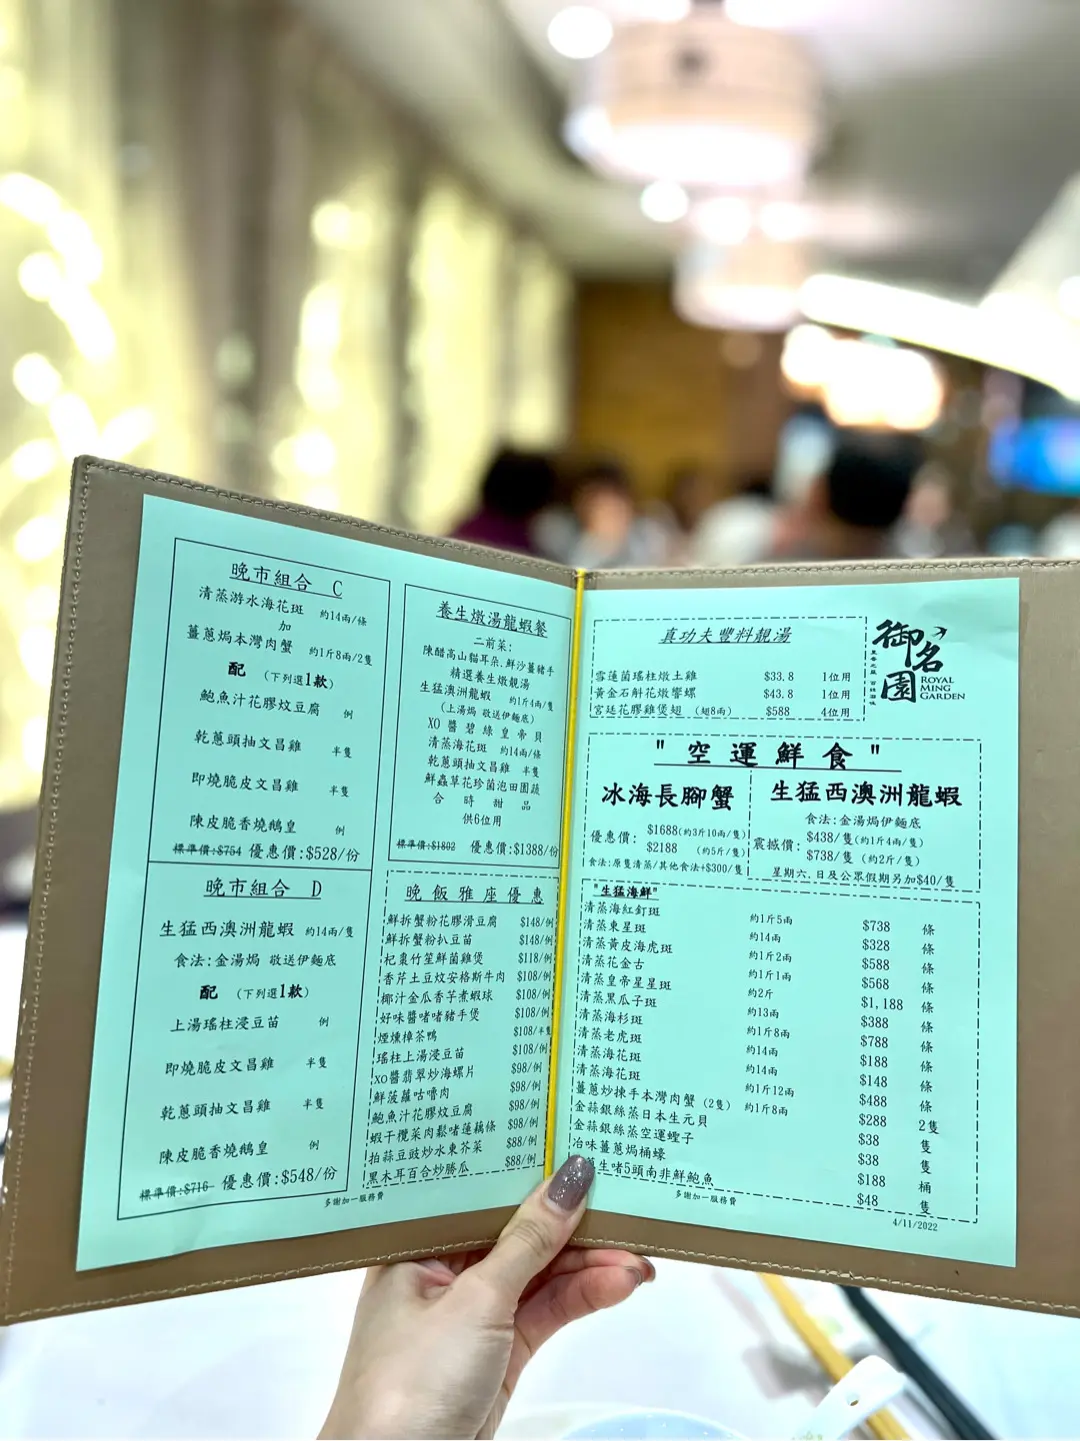 晚市組合 C
清蒸游水海花斑 約14兩/條
加
薑蔥焗本灣肉蟹 約1斤8兩/2隻
配 (下列選1款)
鮑魚汁花膠炆豆腐 例
乾蔥頭抽文昌雞 半隻
即燒脆皮文昌雞 半隻
陳皮脆香燒鵝皇 例
標準價:$754 優惠價:$528/份
晚市組合 D
生猛西澳洲龍蝦 約14兩/隻
食法:金湯焗 敬送伊麵底
配 (下列選1款)
上湯瑤柱浸豆苗 例
即燒脆皮文昌雞 半隻
乾蔥頭抽文昌雞 半隻
陳皮脆香燒鵝皇 例
標準價:$716 優惠價:$548/份
養生燉湯龍蝦餐
二前菜:
陳醋高山貓耳朵.鮮沙薑豬手
精選養生燉靚湯
生猛澳洲龍蝦 約1斤4兩/隻
(上湯焗 敬送伊麵底)
XO醬碧綠皇帝貝
清蒸海花斑 約14兩/條
乾蔥頭抽文昌雞 半隻
鮮蟲草花珍菌泡田園蔬
合時甜品
供6位用
標準價:$1802 優惠價:$1388/份
晚飯雅座優惠
鮮拆蟹粉花膠滑豆腐 $148/例
鮮拆蟹粉扒豆苗 $148/例
杞棗竹笙鮮菌雞煲 $118/例
香芹土豆炆安格斯牛肉 $108/例
椰汁金瓜香芋煮蝦球 $108/例
好味醬啫啫豬手煲 $108/例
煙燻樟茶鴨 $108/半隻
瑤柱上湯浸豆苗 $108/例
XO醬翡翠炒海螺片 $98/例
鮮菠蘿咕嚕肉 $98/例
鮑魚汁花膠炆豆腐 $98/例
蝦干欖菜肉鬆啫蓮藕條 $98/例
拍蒜豆豉炒水東芥菜 $88/例
黑木耳百合炒勝瓜 $88/例
多謝加一服務費
真功夫豐料靚湯
雪蓮菌瑤柱燉土雞 $33.8 1位用
黃金石斛花燉響螺 $43.8 1位用
宮廷花膠雞煲翅 (翅8兩) $588 4位用
御名園
ROYAL
MING
GARDEN
"空運鮮食"
冰海長腳蟹
優惠價: $1688(約3斤10兩/隻)
$2188 (約5斤/隻)
食法:原隻清蒸/其他食法+$300/隻
生猛西澳洲龍蝦
食法:金湯焗伊麵底
震撼價: $438/隻(約1斤4兩/隻)
$738/隻 (約2斤/隻)
星期六.日及公眾假期另加$40/隻
"生猛海鮮"
清蒸海紅釘斑 約1斤5兩 $738 條
清蒸東星斑 約14兩 $328 條
清蒸黃皮海虎斑 約1斤2兩 $588 條
清蒸花金古 約1斤1兩 $568 條
清蒸皇帝星星斑 約2斤 $1,188 條
清蒸黑瓜子斑 約13兩 $388 條
清蒸海杉斑 約1斤8兩 $788 條
清蒸老虎斑 約14兩 $188 條
清蒸海花斑 約14兩 $148 條
清蒸海花斑 約1斤12兩 $488 條
薑蔥炒揀手本灣肉蟹 (2隻) 約1斤8兩 $288 2隻
金蒜銀絲蒸日本生元貝 $38 隻
金蒜銀絲蒸空運蟶子 $38 隻
冶味薑蔥焗桶蠔 $188 桶
生啫5頭南非鮮鮑魚 $48 隻
多謝加一服務費
4/11/2022